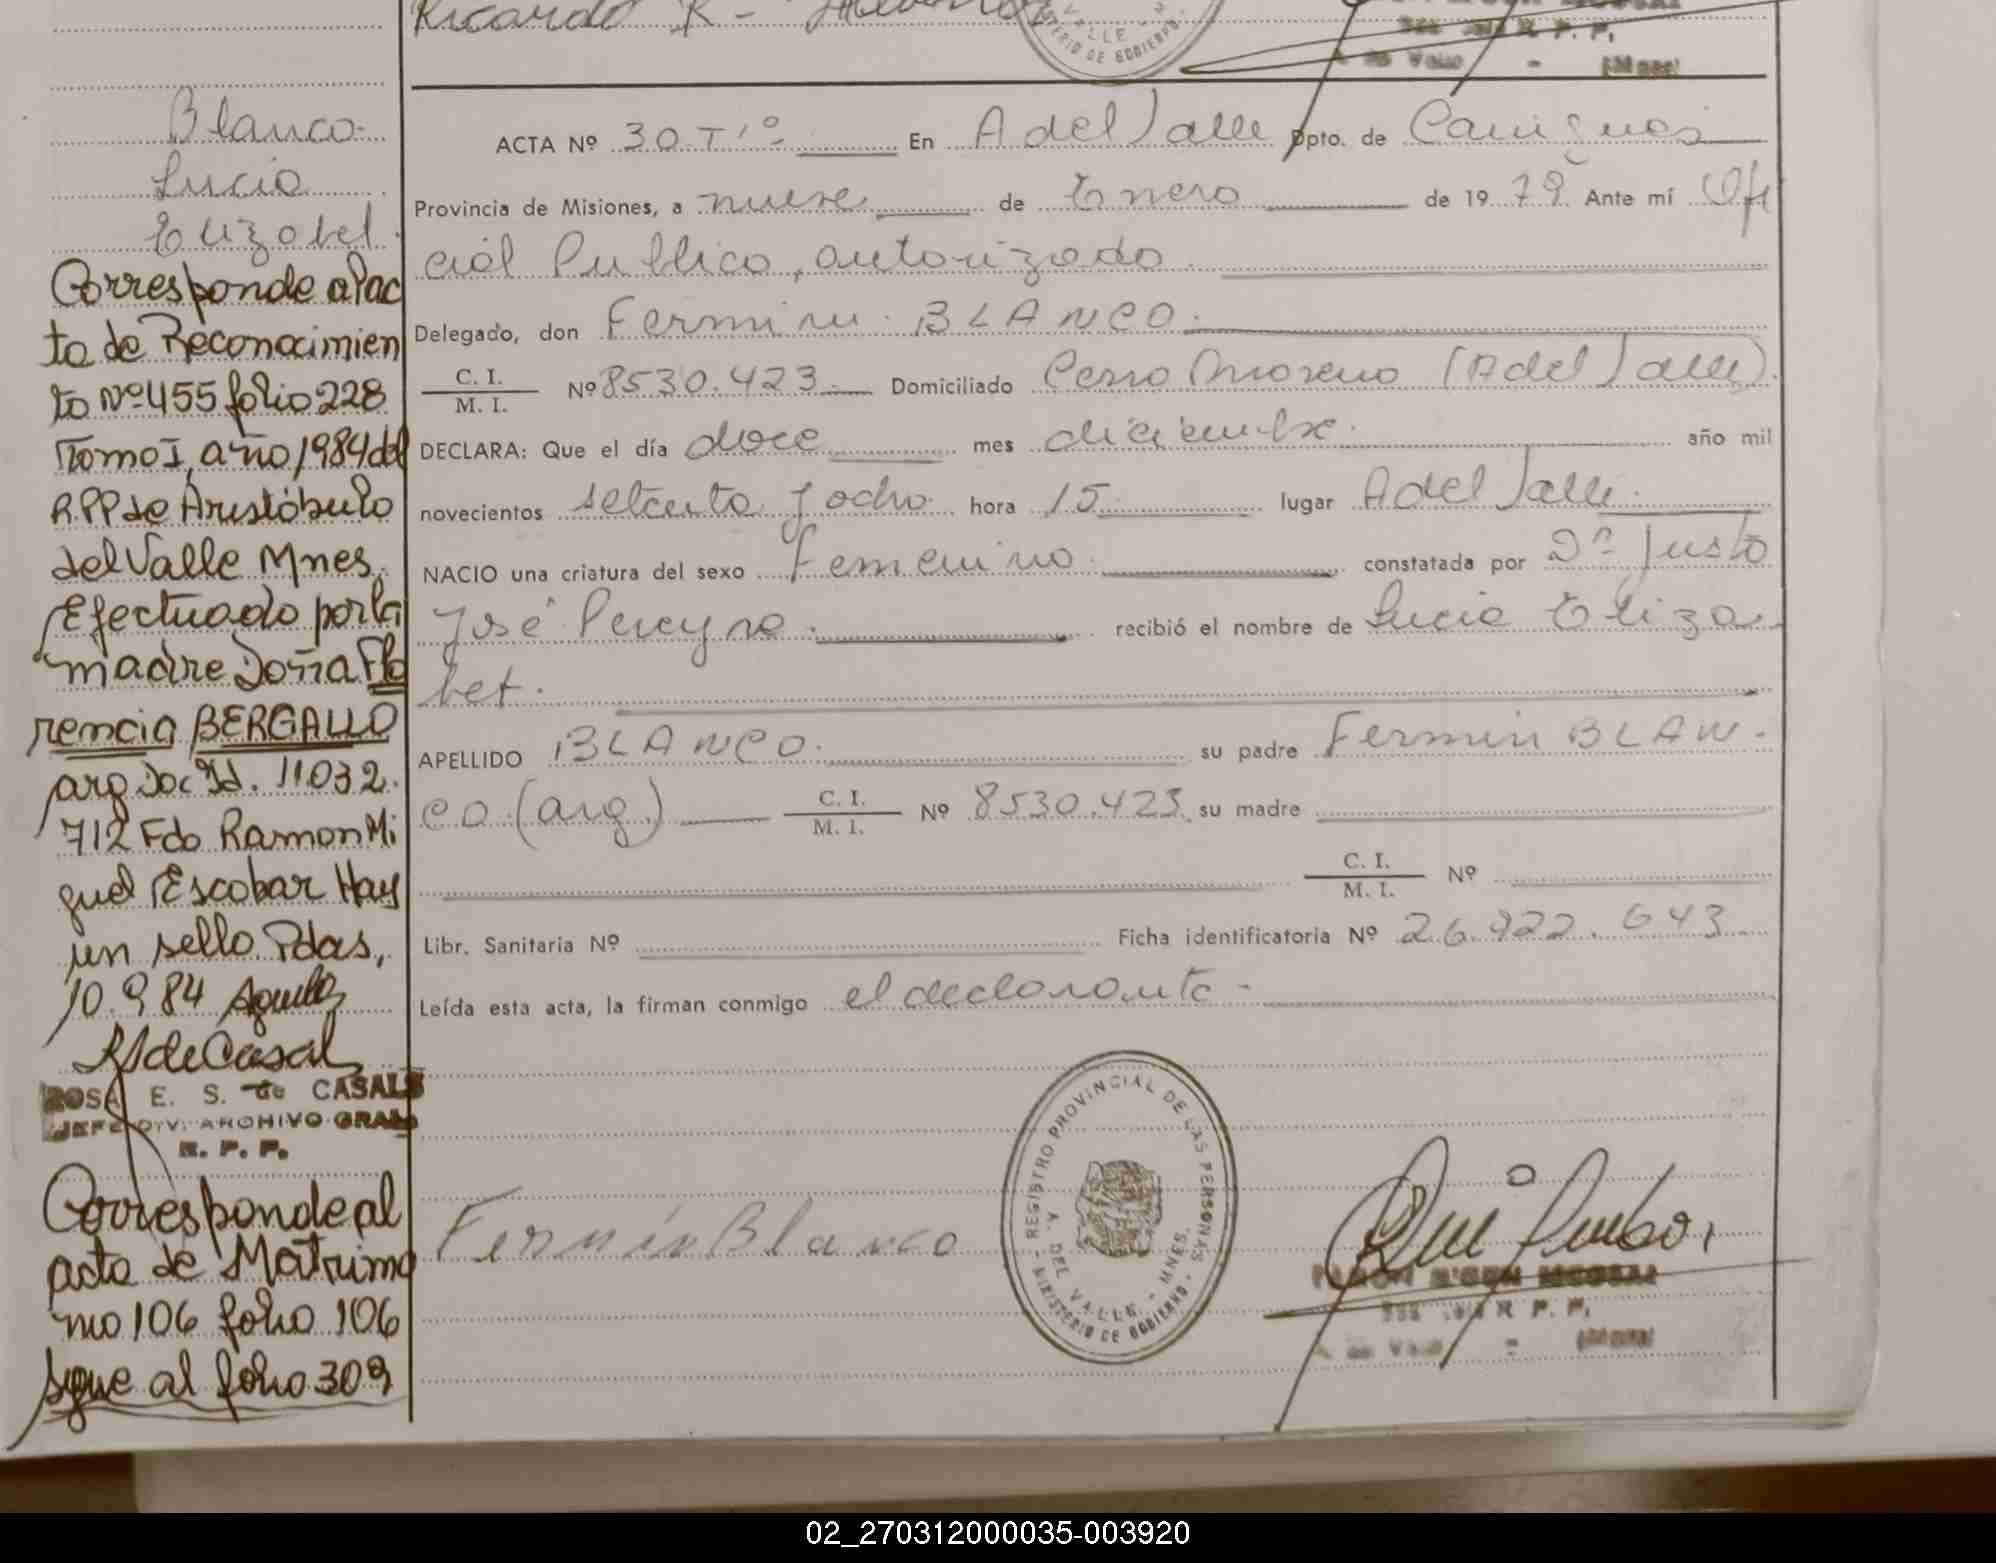 Ricardo R -
VALLE
MINISTERIO DE GOBIERNO
R. P. P.
Blanco
Lucia
Elizabet
Corresponde al ac
ta de Reconocimien
to Nº 455 folio 228
Tomo I, año 1984 del
R.P.P de Aristóbulo
del Valle Mnes.
Efectuado por la
madre Doña Flo
rencia BERGALLO
arg. Doc Id. 11.032.
712 Fdo Ramon Mi
guel Escobar Hay
un sello. Pdas,
10.9.84
RSdeCasal
ROSA E. S. de CASALS
JEFE DIV. ARCHIVO GRAL
R. P. P.
Corresponde al
acta de Matrimo
nio 106 folio 106
Sigue al folio 309
ACTA Nº 30 Tº En A del Valle Dpto. de Cainguas
Provincia de Misiones, a nueve de Enero de 1979 Ante mí Ofi
cial Publico, autorizado
Delegado, don Fermin BLANCO.
C. I.
M. I. Nº 8530.423 Domiciliado Cerro Moreno (A del Valle)
DECLARA: Que el día doce mes diciembre. año mil
novecientos setenta y ocho hora 15 lugar A del Valle.
NACIO una criatura del sexo Femenino. constatada por Dn Justo
José Pereyra. recibió el nombre de Lucia Eliza
bet.
APELLIDO BLANCO. su padre Fermin BLAN
CO. (arg) C. I.
M. I. Nº 8530.423 su madre
C. I.
M. I. Nº
Libr. Sanitaria Nº Ficha identificatoria Nº 26.922.643
Leída esta acta, la firman conmigo el declarante -
REGISTRO PROVINCIAL DE LAS PERSONAS
MINISTERIO DE GOBIERNO
DEL VALLE - MNES.
Fermín Blanco
R. P. P.
02_270312000035-003920